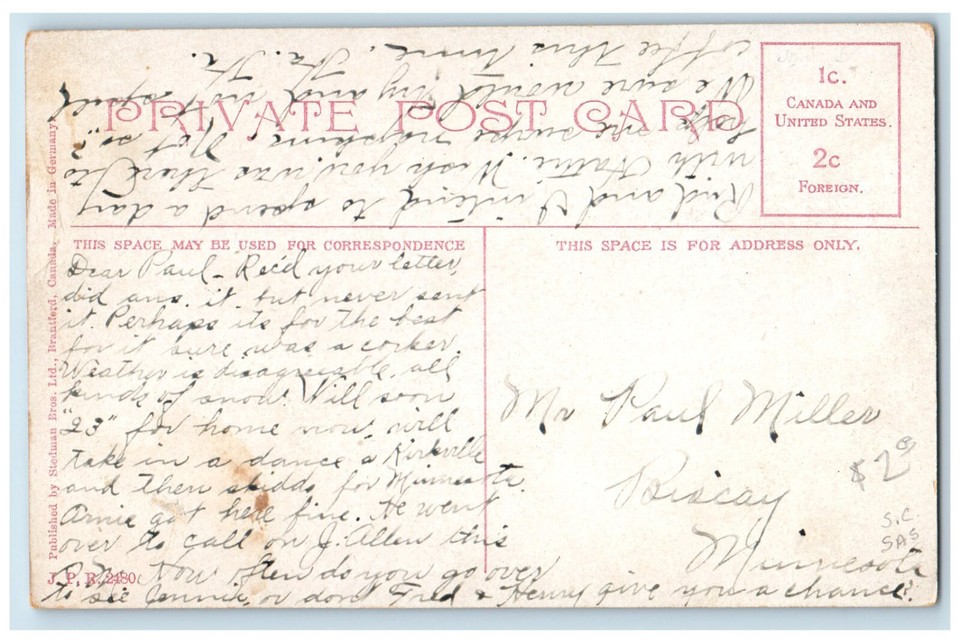 PRIVATE POST CARD
1c.
CANADA AND
UNITED STATES.
2c
FOREIGN.
THIS SPACE MAY BE USED FOR CORRESPONDENCE
THIS SPACE IS FOR ADDRESS ONLY.
Dear Paul - Rec'd your letter,
did ans. it. but never sent
it. Perhaps its for the best
for it sure was a corker.
Weather is disagreeable. all
kinds of snow. Will soon
"23" for home now. will
take in a dance a Kirkville
and then skidds for Minnesota.
Arnie got here fine. He went
over to call on J. Allen this
P.M. How often do you go over
to see Jennie, or dont Fred & Henry give you a chance?
and I intend to spend a day
with Hattie. Wish you was there to
We sure would try and not spill
coffee this time.
Mr Paul Miller
Biscay
Minnesota
$2
S.C.
SAS
Published by Stedman Bros. Ltd., Brantford, Canada, Made in Germany
J. P. R. 2480.